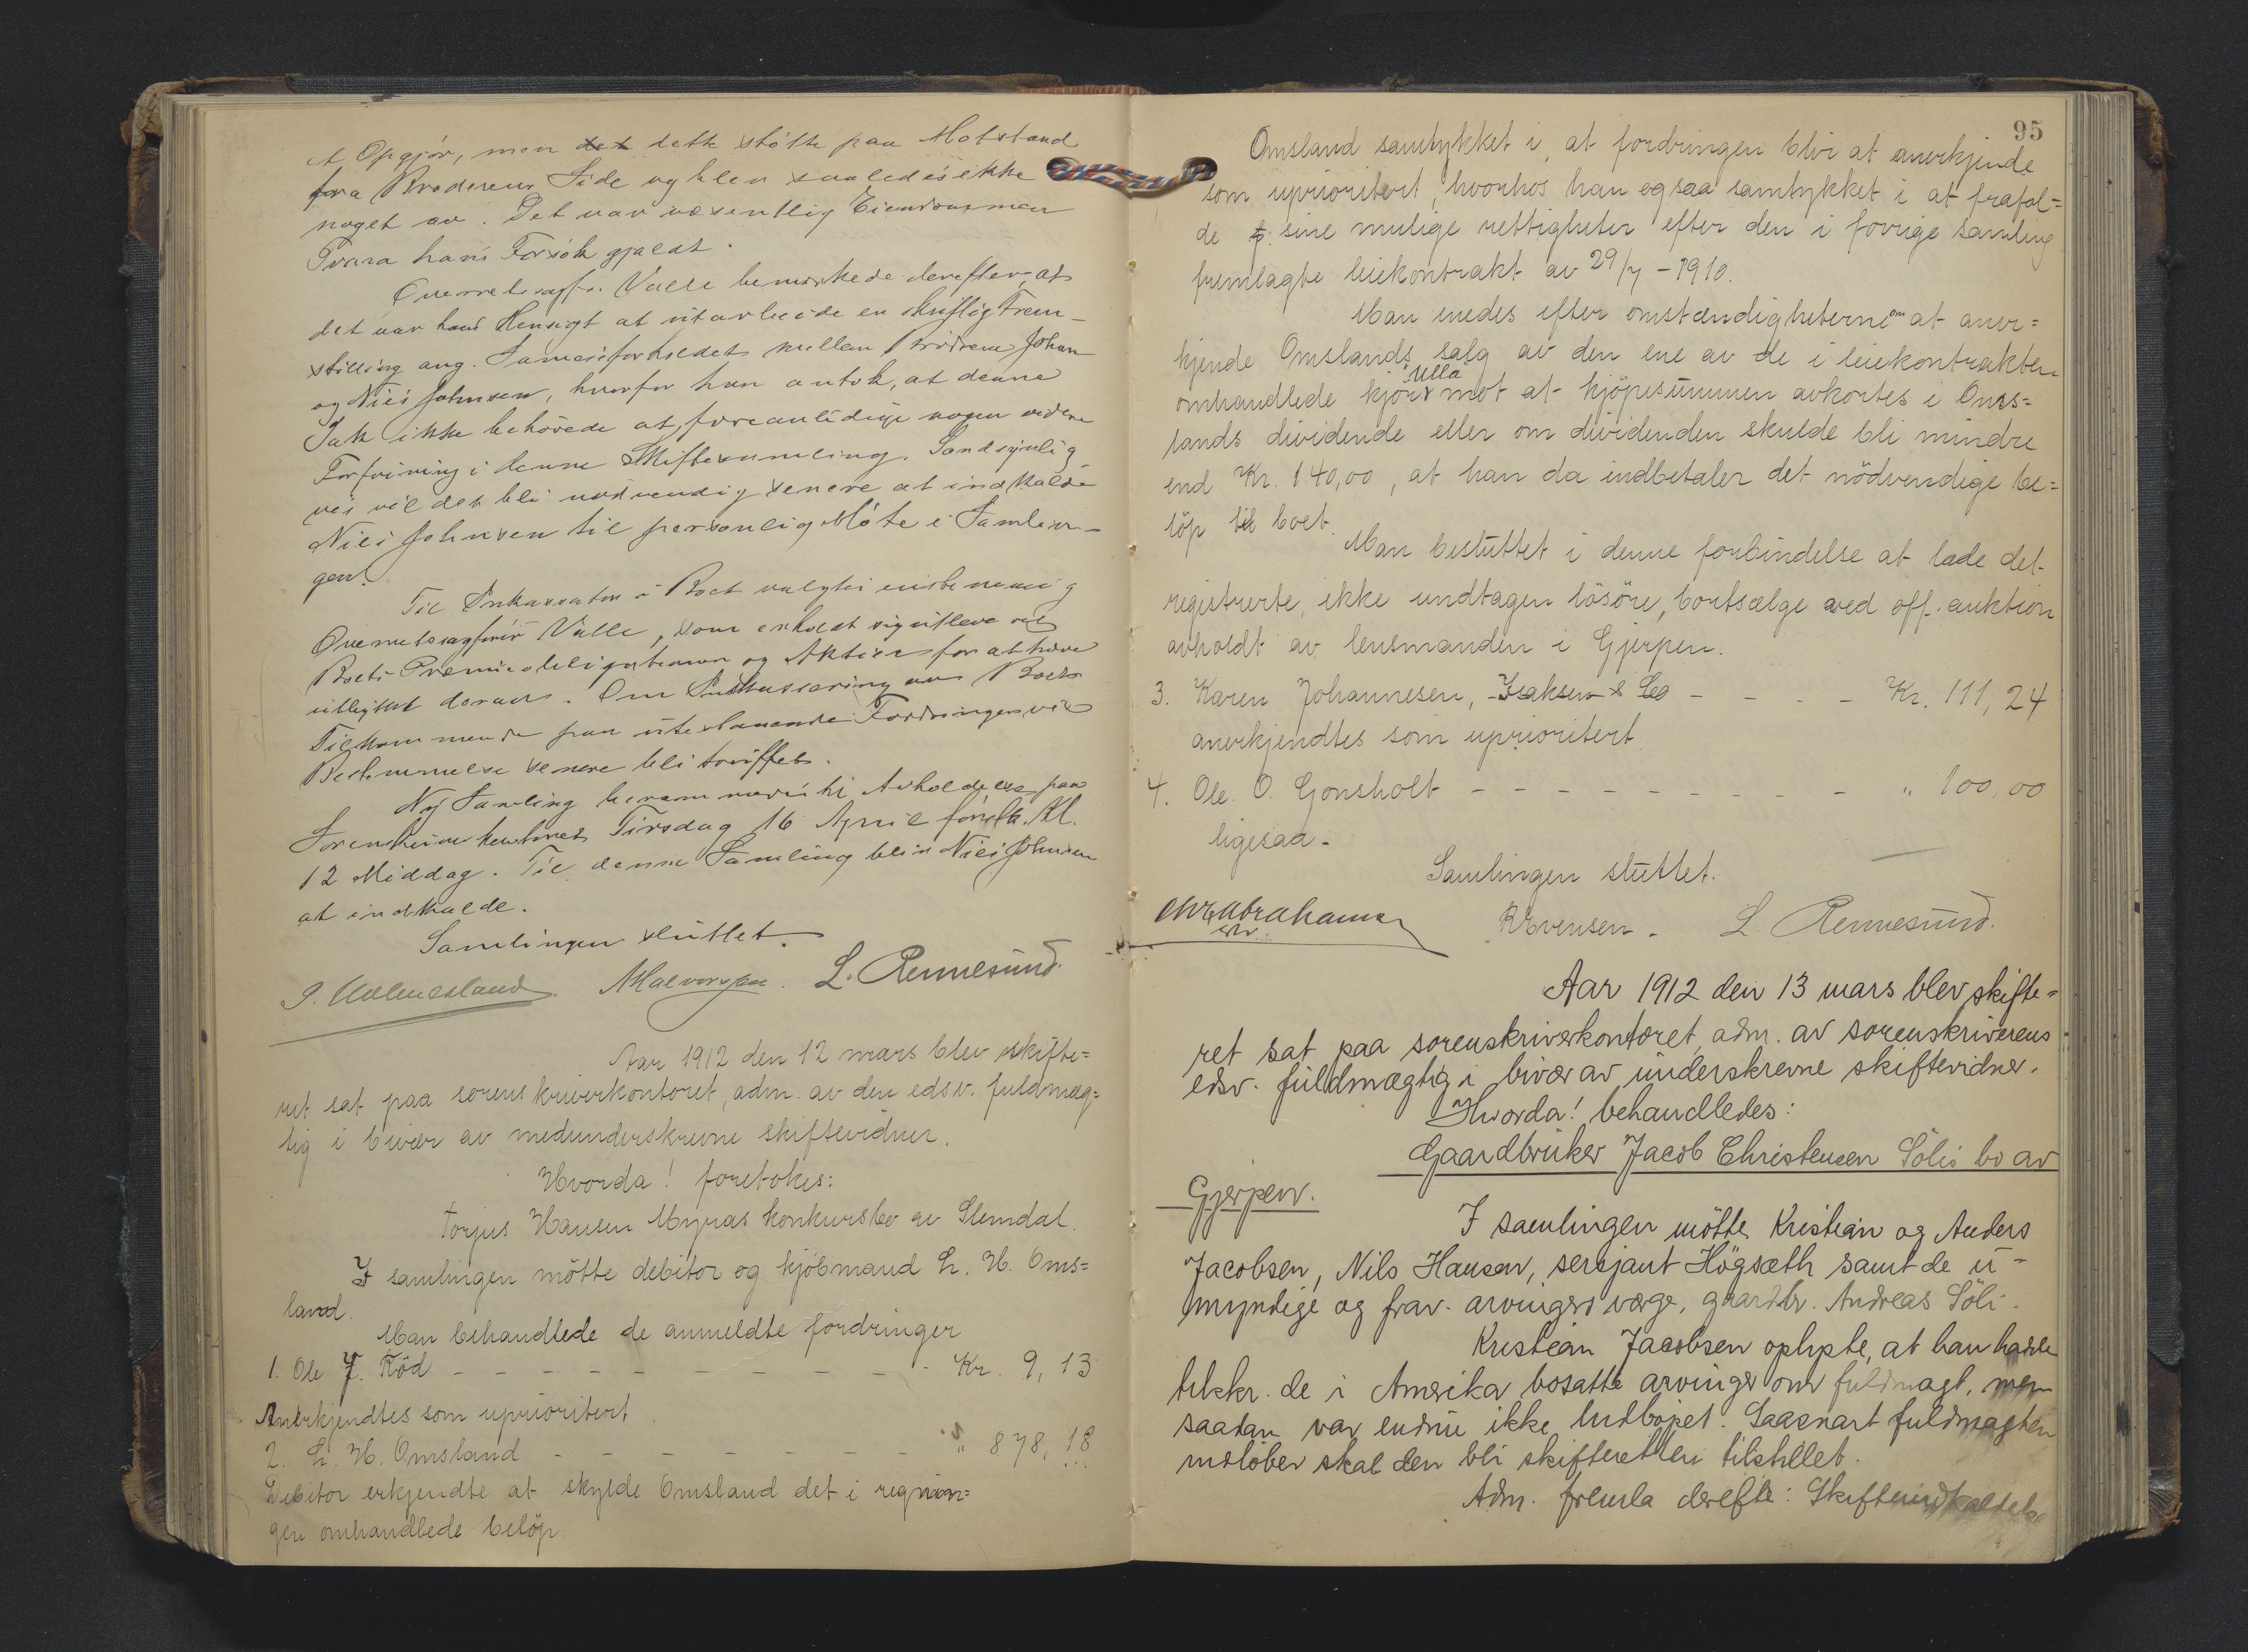 et Opgjör, men det dette stötte paa Motstand
fra Broderens Side og blev saaledes ikke
noget av. Det var væsentlig Eiendommen
Tvara hans Forsök gjaldt.
Overretssagf. Valle bemerkede derefter, at
det var hans Hensigt at utarbeide en skriftlig Frem-
stilling ang. Sameieforholdet mellem Brödrene Johan
og Nils Johnsen, hvorfor han antok, at denne
Sak ikke behövede at foranledige nogen videre
Forföining i denne Skiftesamling. Sandsynlig
vis vil det bli nödvendig senere at indkalde
Nils Johnsen til personlig Möte i Samlin-
gen.
Til Inkassator i Boet valgtes enstemmig
Overretssagförer Valle, som erholdt sig utlevert
Boets Premieobligationer og Aktier for at hæve
utbyttet derav. Om Inkassering av Boets
Tilkommende paa utestaaende Fordringer vil
Bestemmelse senere bli truffet.
Ny Samling berammedes til Avholdelse paa
Sorenskriverkontoret Tirsdag 16 April förstk. Kl.
12 Middag. Til denne Samling blir Nils Johnsen
at indkalde.
Samlingen sluttet.
J. Holmesland. Halvorsen. L. Rennesund.
Aar 1912 den 12 mars blev skifte=
ret sat paa sorenskriverkontoret, adm. av den edsv. fuldmæg=
tig i bivær av medunderskrevne skiftevidner.
Hvorda! foretokes:
Torjus Hansen Myras konkursbo av Slemdal.
I samlingen mötte debitor og kjöbmand L. H. Oms=
land.
Man behandlede de anmeldte fordringer
1. Ole J. Röd - - - - - - - - - - Kr. 9,13
Anerkjendtes som uprioritert.
2. L. H. Omsland - - - - - - - - " 878,18
Debitor erkjendte at skylde Omsland det i regnin=
gen omhandlede belöp.
95
Omsland samtykket i, at fordringen blir at anerkjende
som uprioritert, hvorhos han ogsaa samtykket i at frafal=
de sine mulige rettigheter efter den i forrige samling
fremlagte leiekontrakt av 29/7 - 1910.
Man enedes efter omstændigheterne om at aner=
kjende Omslands salg av den ene av de i leiekontrakten
omhandlede kjör mot at kjöpesummen avkortes i Oms=
lands dividende eller om dividenden skulde bli mindre
end Kr. 140,00, at han da indbetaler det nödvendige be=
löp til boet.
Man besluttet i denne forbindelse at lade det
registrerte, ikke undtagen lösöre, bortsælge ved off. auktion
avholdt av lensmanden i Gjerpen.
3. Karen Johannesen, Isaksen & Co - - - - Kr. 111,24
anerkjendtes som uprioritert
4. Ole O. Gonsholt - - - - - - - - - " 100,00
ligesaa.
Samlingen sluttet.
Chr. Abrahamsen Evensen. L. Rennesund.
Aar 1912 den 13 mars blev skifte=
ret sat paa sorenskriverkontoret, adm. av sorenskriverens
edsv. fuldmægtig i bivær av underskrevne skiftevidner.
Hvorda! behandledes:
Gaardbruker Jacob Christensen Sölis bo av
Gjerpen.
I samlingen mötte Kristian og Anders
Jacobsen, Nils Hansen, serjant Högsæth samt de u-
myndige og frav. arvingers værge, gaardbr. Andreas Söli.
Kristian Jacobsen oplyste, at han hadde
tilskr. de i Amerika bosatte arvinger om fuldmagt, men
saadan var endnu ikke indlöpet. Saasnart fuldmagten
indlöber skal den bli skifteretten tilstillet.
Adm. fremla derefter: Skifteindkaldelse